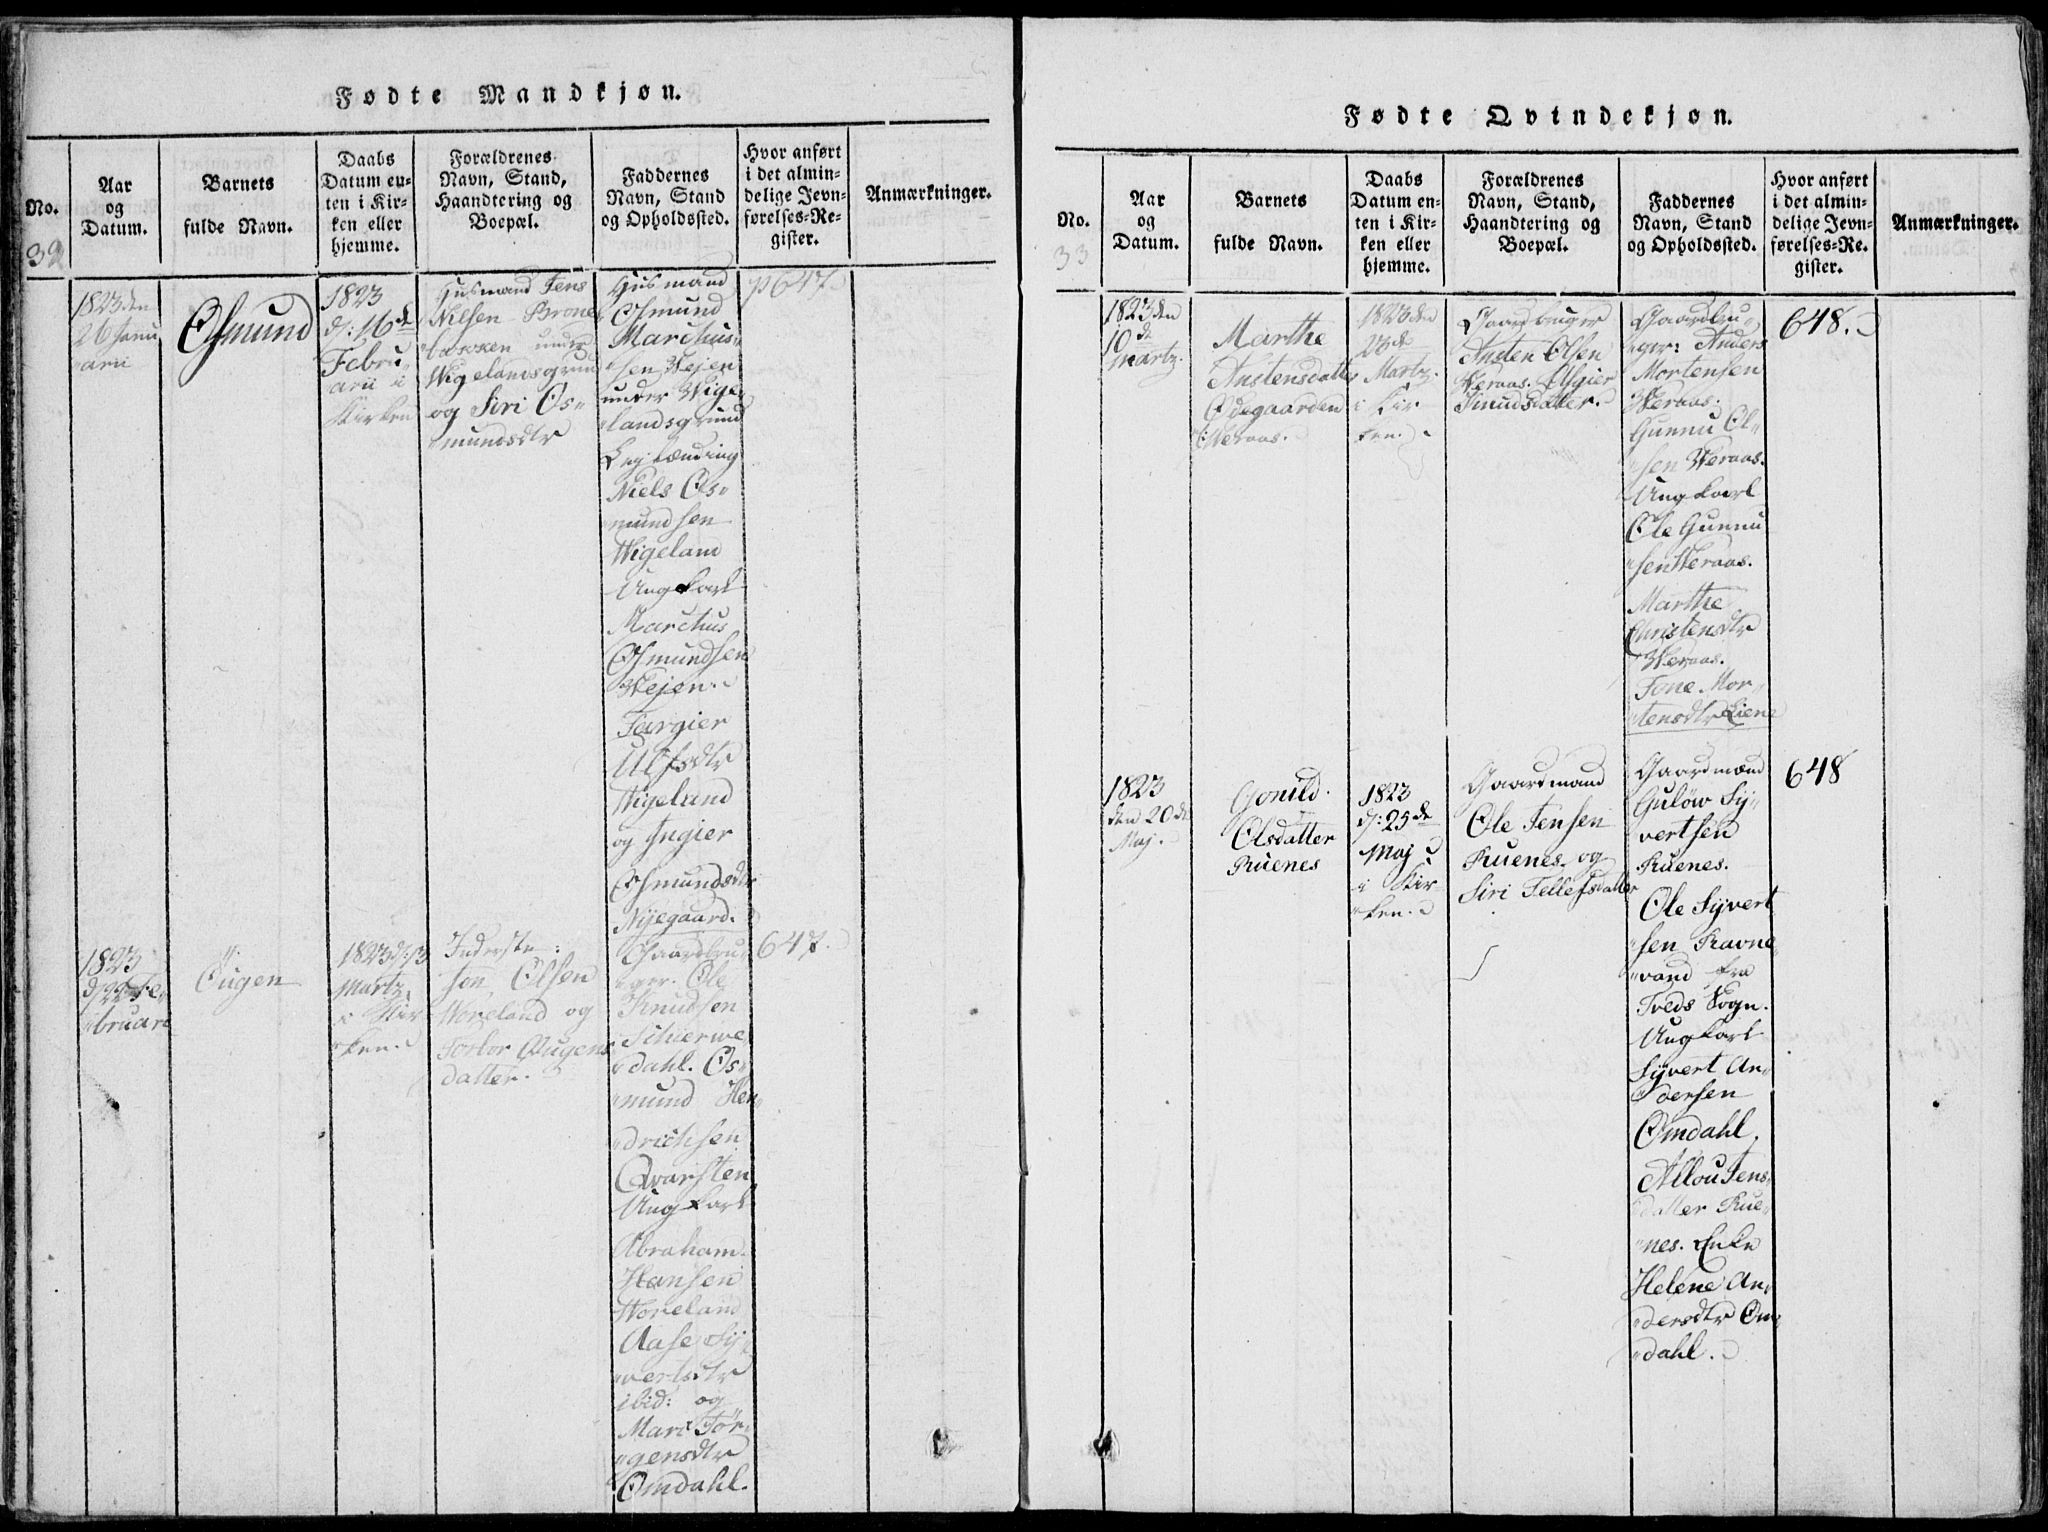 Fødte Mandkjøn.
No.
Aar
og
Datum.
Barnets
fulde Navn.
Daabs
Datum en-
ten i Kir-
ken eller
hjemme.
Forældrenes
Navn, Stand,
Haandtering og
Boepæl.
Faddernes
Navn, Stand
og Opholdssted.
Hvor anført
i det almin-
delige Jevn-
førelses-Re-
gister.
Anmærkninger.
32
1823 den
26 Janu
arii
Osmund
1823
d: 16de
Febru
arii i
Kirken
Husmand Jens
Nilsen Brone
bakken under
Wigelandsgrund
og Siri Os-
mundsdtr
Husmand
Osmund
Marchus-
sen Vejen
under Wige-
landsgrund
Niels Os-
mundsen
Wigeland
Ungkarl
Marchus
Osmundsen
Vejen.
Torgier
Ulfsdtr
Wigeland
og Ingier
Osmundsdtr
Nijegaard.
p 647.
1823
d: 22 Fe-
bruari
Ougen
1823 d: 3
Martz
i Kir-
ken.
Inderste
Jon Olsen
Woreland og
Torbor Ougens
datter.
Gaardbru-
ger. Ole
Knudsen
Schierwe-
dahl. Os-
mund Hen-
drichsen
Qvarsten
Ungkarl
Abraham
Hansen
Woreland
Aase Sy-
vertsdtr
ibid: og
Mari Jør-
gensdtr
Omdahl.
647.
Fødte Qvindekjøn.
No.
Aar
og
Datum.
Barnets
fulde Navn.
Daabs
Datum en-
ten i Kir-
ken eller
hjemme.
Forældrenes
Navn, Stand,
Haandtering og
Boepæl.
Faddernes
Navn, Stand
og Opholdssted.
Hvor anført
i det almin-
delige Jevn-
førelses-Re-
gister.
Anmærkninger.
33
1823 den
10de
Martz.
Marthe
Austensdatter
Ødegaarden
Weraas.
1823 den
23de
Martz.
i Kir-
ken.
Gaardbruger
Austen Olsen
Weraas. Asgier
Knudsdatter.
Gaardbru-
ger: Anders
Mortensen
Weraas.
Gunnu Ol-
sen Weraas.
Ungkarl
Ole Gunnu
sen Weraas.
Marthe
Christensdtr
Weraas.
Tone Mor-
tensdtr Liene
648.
1823
den 20de
Maj.
Gonild
Olsdatter
Ruenes
1823
d: 25de
Maj
i Kir-
ken.
Gaardmand
Ole Jensen
Ruenes og
Siri Tellefsdatter
Gaardmand
Guløw Sy-
vertsen
Ruenes.
Ole Syvert
sen Ravne
vand fra
Tveds Sogn.
Ungkarl
Syvert An-
dersen
Omdahl.
Allou Jens-
datter Rue-
nes. Enke
Helene An-
dersdtr Om-
dahl.
648